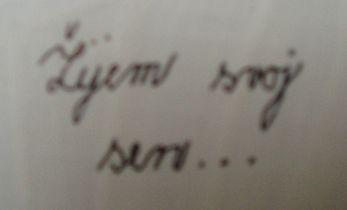 Žijem svoj
sen...